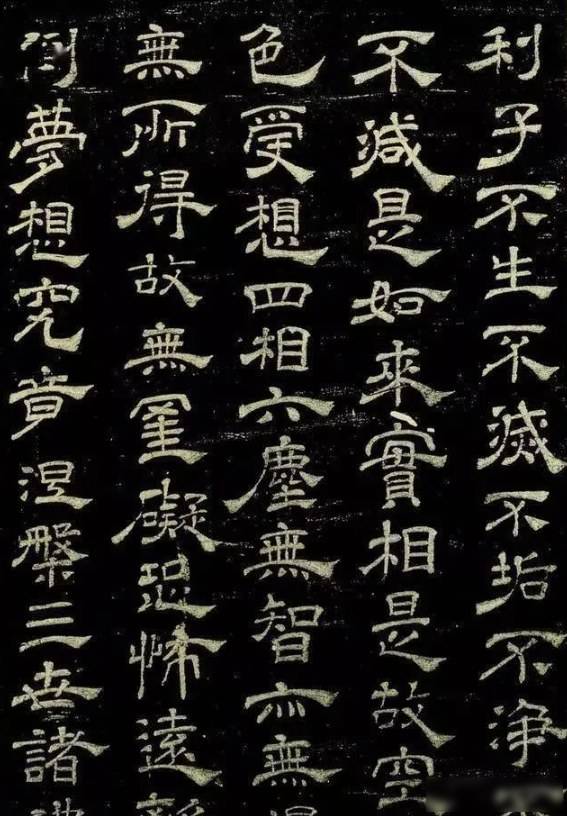 利子不生不滅不垢不浄
不減是如來實相是故空
色受想四相六塵無智亦無
無所得故無罣礙恐怖遠
倒夢想究竟涅槃三世諸